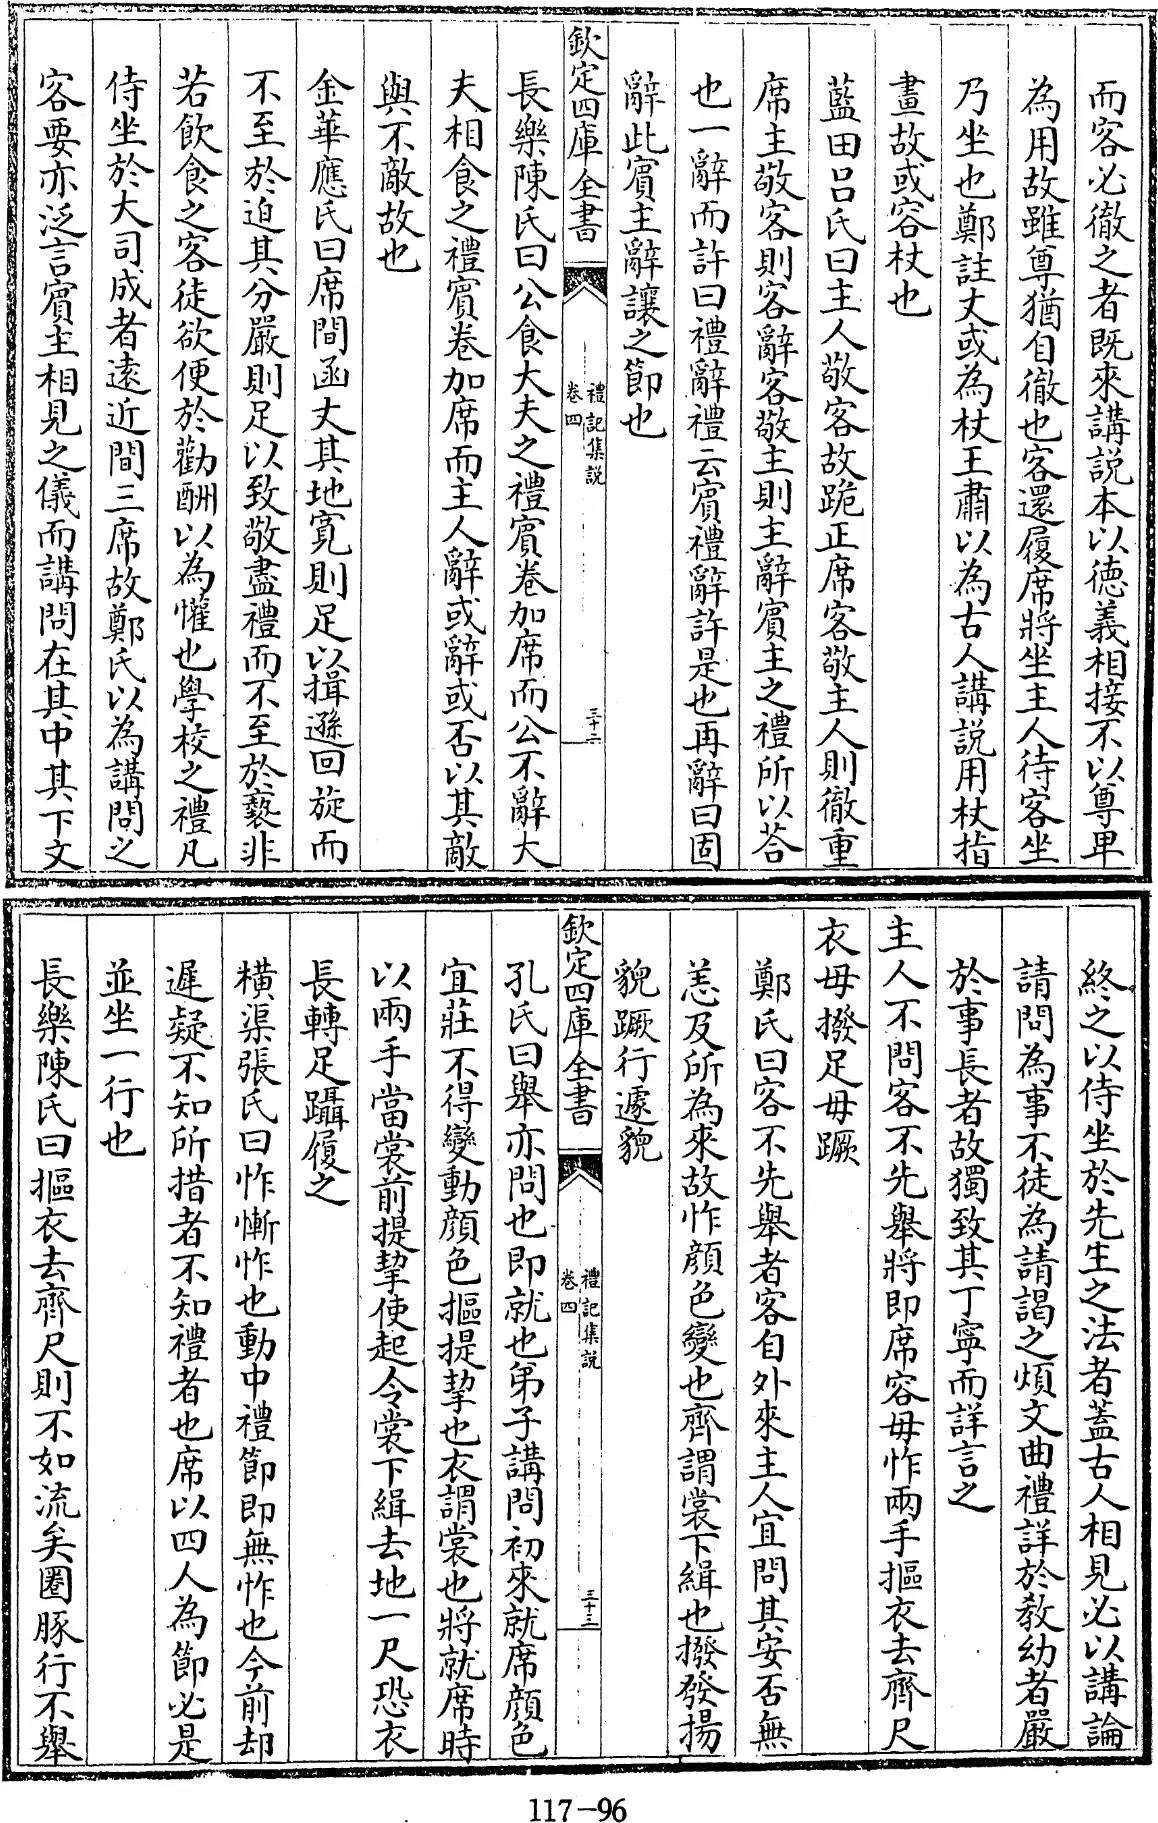 而客必徹之者既來講説本以徳義相接不以尊卑
為用故雖尊猶自徹也客還履席將坐主人待客坐
乃坐也鄭註丈或為杖王肅以為古人講説用杖指
畫故或容杖也
藍田呂氏曰主人敬客故跪正席客敬主人則徹重
席主敬客則客辭客敬主則主辭賓主之禮所以荅
也一辭而許曰禮辭禮云賓禮辭許是也再辭曰固
辭此賓主辭讓之節也
欽定四庫全書
禮記集説
卷四
三十二
長樂陳氏曰公食大夫之禮賓卷加席而公不辭大
夫相食之禮賓卷加席而主人辭或辭或否以其敵
與不敵故也
金華應氏曰席間函丈其地寛則足以揖遜回旋而
不至於迫其分嚴則足以致敬盡禮而不至於褻非
若飲食之客徒欲便於勸酬以為懽也學校之禮凡
侍坐於大司成者逺近間三席故鄭氏以為講問之
客要亦泛言賓主相見之儀而講問在其中其下文
終之以侍坐於先生之法者蓋古人相見必以講論
請問為事不徒為請謁之煩文曲禮詳於教幼者嚴
於事長者故獨致其丁寧而詳言之
主人不問客不先舉將即席容毋怍兩手摳衣去齊尺
衣毋撥足毋蹶
鄭氏曰客不先舉者客自外來主人宜問其安否無
恙及所為來故怍顔色變也齊謂裳下緝也撥發揚
貌蹶行遽貌
欽定四庫全書
禮記集説
卷四
三十三
孔氏曰舉亦問也即就也弟子講問初來就席顔色
宜莊不得變動顔色摳提挈也衣謂裳也將就席時
以兩手當裳前提挈使起令裳下緝去地一尺恐衣
長轉足躡履之
横渠張氏曰怍慚怍也動中禮節即無怍也今前却
遲疑不知所措者不知禮者也席以四人為節必是
並坐一行也
長樂陳氏曰摳衣去齊尺則不如流矣圈豚行不舉
117-96